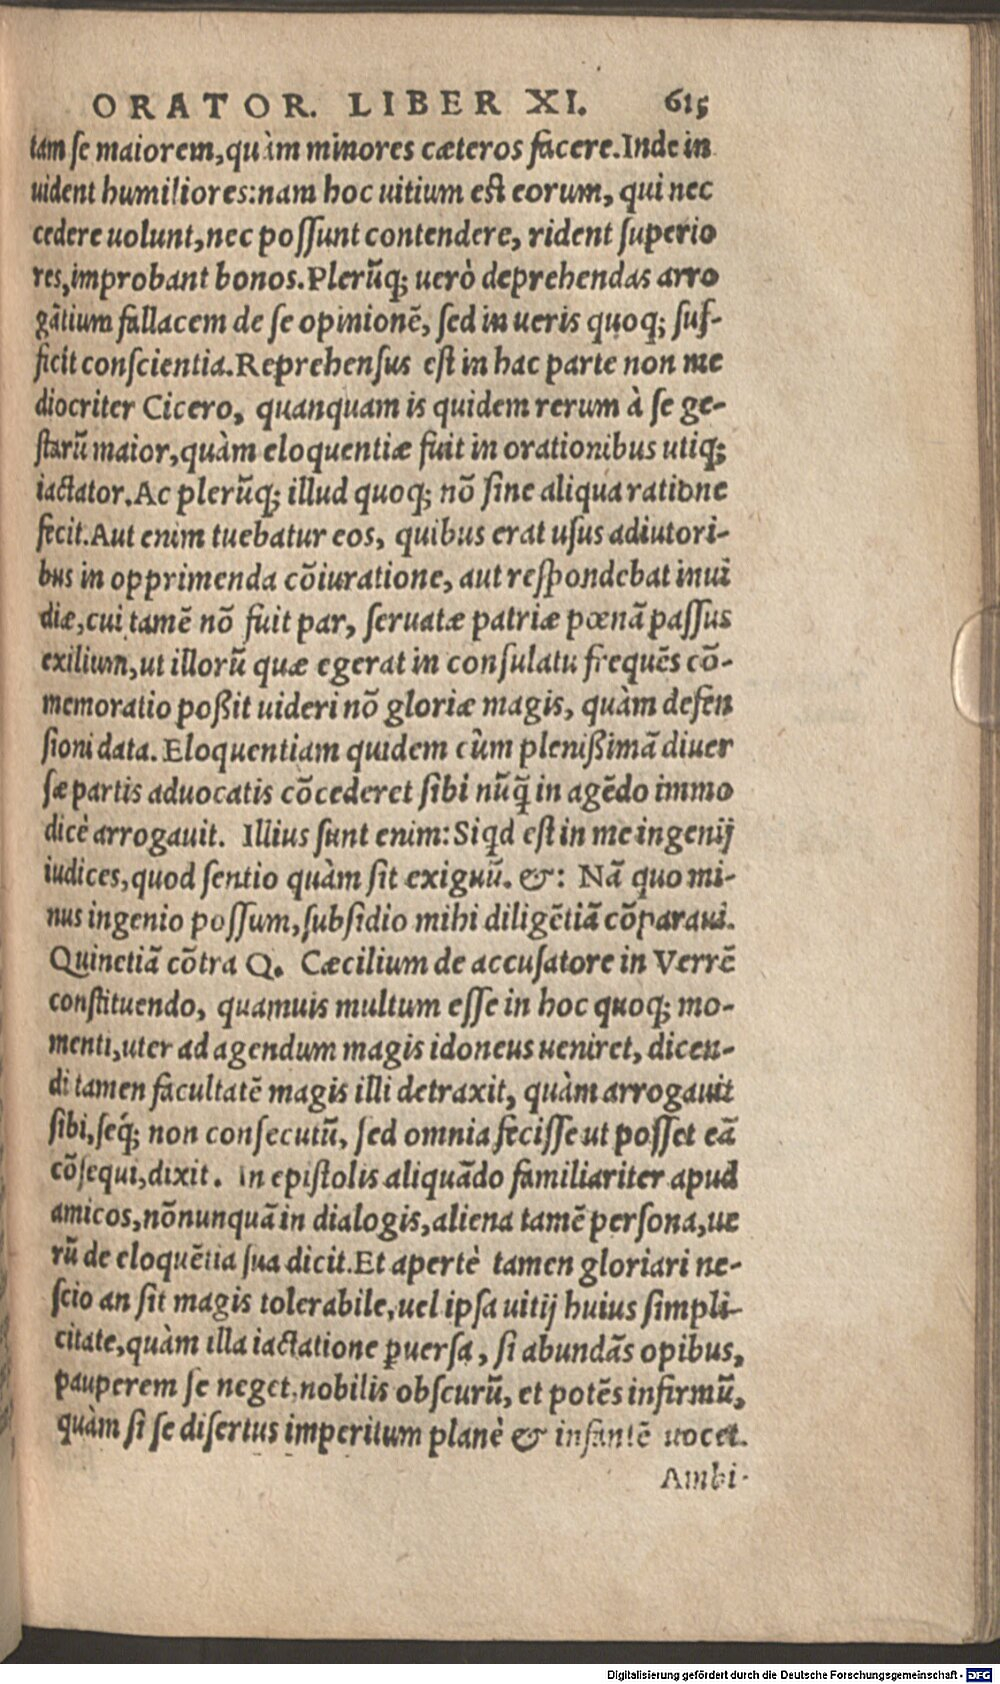 ORATOR. LIBER XI. 615
tam se maiorem,quàm minores cæteros facere.Inde in
uident humiliores:nam hoc uitium est eorum, qui nec
cedere uolunt,nec possunt contendere, rident superio
res,improbant bonos.Plerũq; uerò deprehendas arro
gãtium fallacem de se opinionẽ, sed in ueris quoq; suf-
ficit conscientia.Reprehensus est in hac parte non me
diocriter Cicero, quanquam is quidem rerum à se ge-
starũ maior,quàm eloquentiæ fuit in orationibus utiq;
iactator.Ac plerũq; illud quoq; nõ sine aliqua ratione
fecit.Aut enim tuebatur eos, quibus erat usus adiutori-
bus in opprimenda cõiuratione, aut respondebat inui
diæ,cui tamẽ nõ fuit par, seruatæ patriæ pœnã passus
exilium,ut illorũ quæ egerat in consulatu frequẽs cõ-
memoratio poßit uideri nõ gloriæ magis, quàm defen
sioni data. Eloquentiam quidem cùm plenißimã diuer
sæ partis aduocatis cõcederet sibi nũq̃ in agẽdo immo
dicè arrogauit. Illius sunt enim:Siqd est in me ingenij
iudices,quod sentio quàm sit exiguũ. &: Nã quo mi-
nus ingenio possum,subsidio mihi diligẽtiã cõparaui.
Quinetiã cõtra Q. Cæcilium de accusatore in Verrẽ
constituendo, quamuis multum esse in hoc quoq; mo-
menti,uter ad agendum magis idoneus ueniret, dicen-
di tamen facultatẽ magis illi detraxit, quàm arrogauit
sibi,seq́; non consecutũ, sed omnia fecisse ut posset eã
cõsequi,dixit. In epistolis aliquãdo familiariter apud
amicos,nõnunquã in dialogis,aliena tamẽ persona,ue
rũ de eloquẽtia sua dicit.Et apertè tamen gloriari ne-
scio an sit magis tolerabile,uel ipsa uitij huius simpli-
citate,quàm illa iactatione ꝑuersa, si abundãs opibus,
pauperem se neget,nobilis obscurũ, et potẽs infirmũ,
quàm si se disertus imperitum planè & infantẽ uocet.
Ambi-
Digitalisierung gefördert durch die Deutsche Forschungsgemeinschaft - DFG